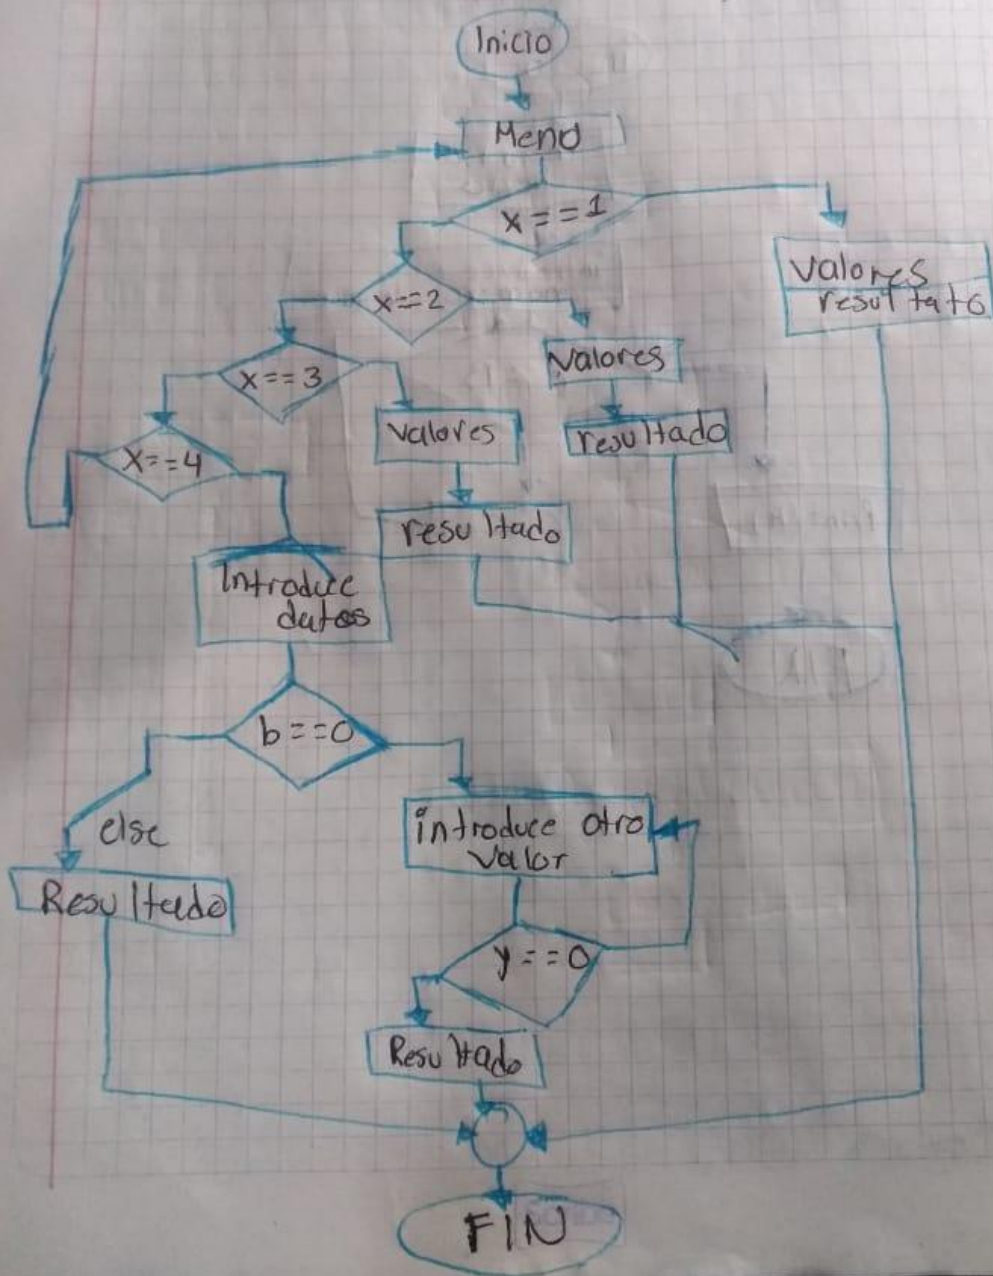 Inicio
Menu
x==1
Valores
resultato
x==2
x==3
Valores
resultado
x==4
Valores
resultado
Introduce
datos
b==0
else
introduce otro
Valor
Resultado
y==0
Resultado
FIN